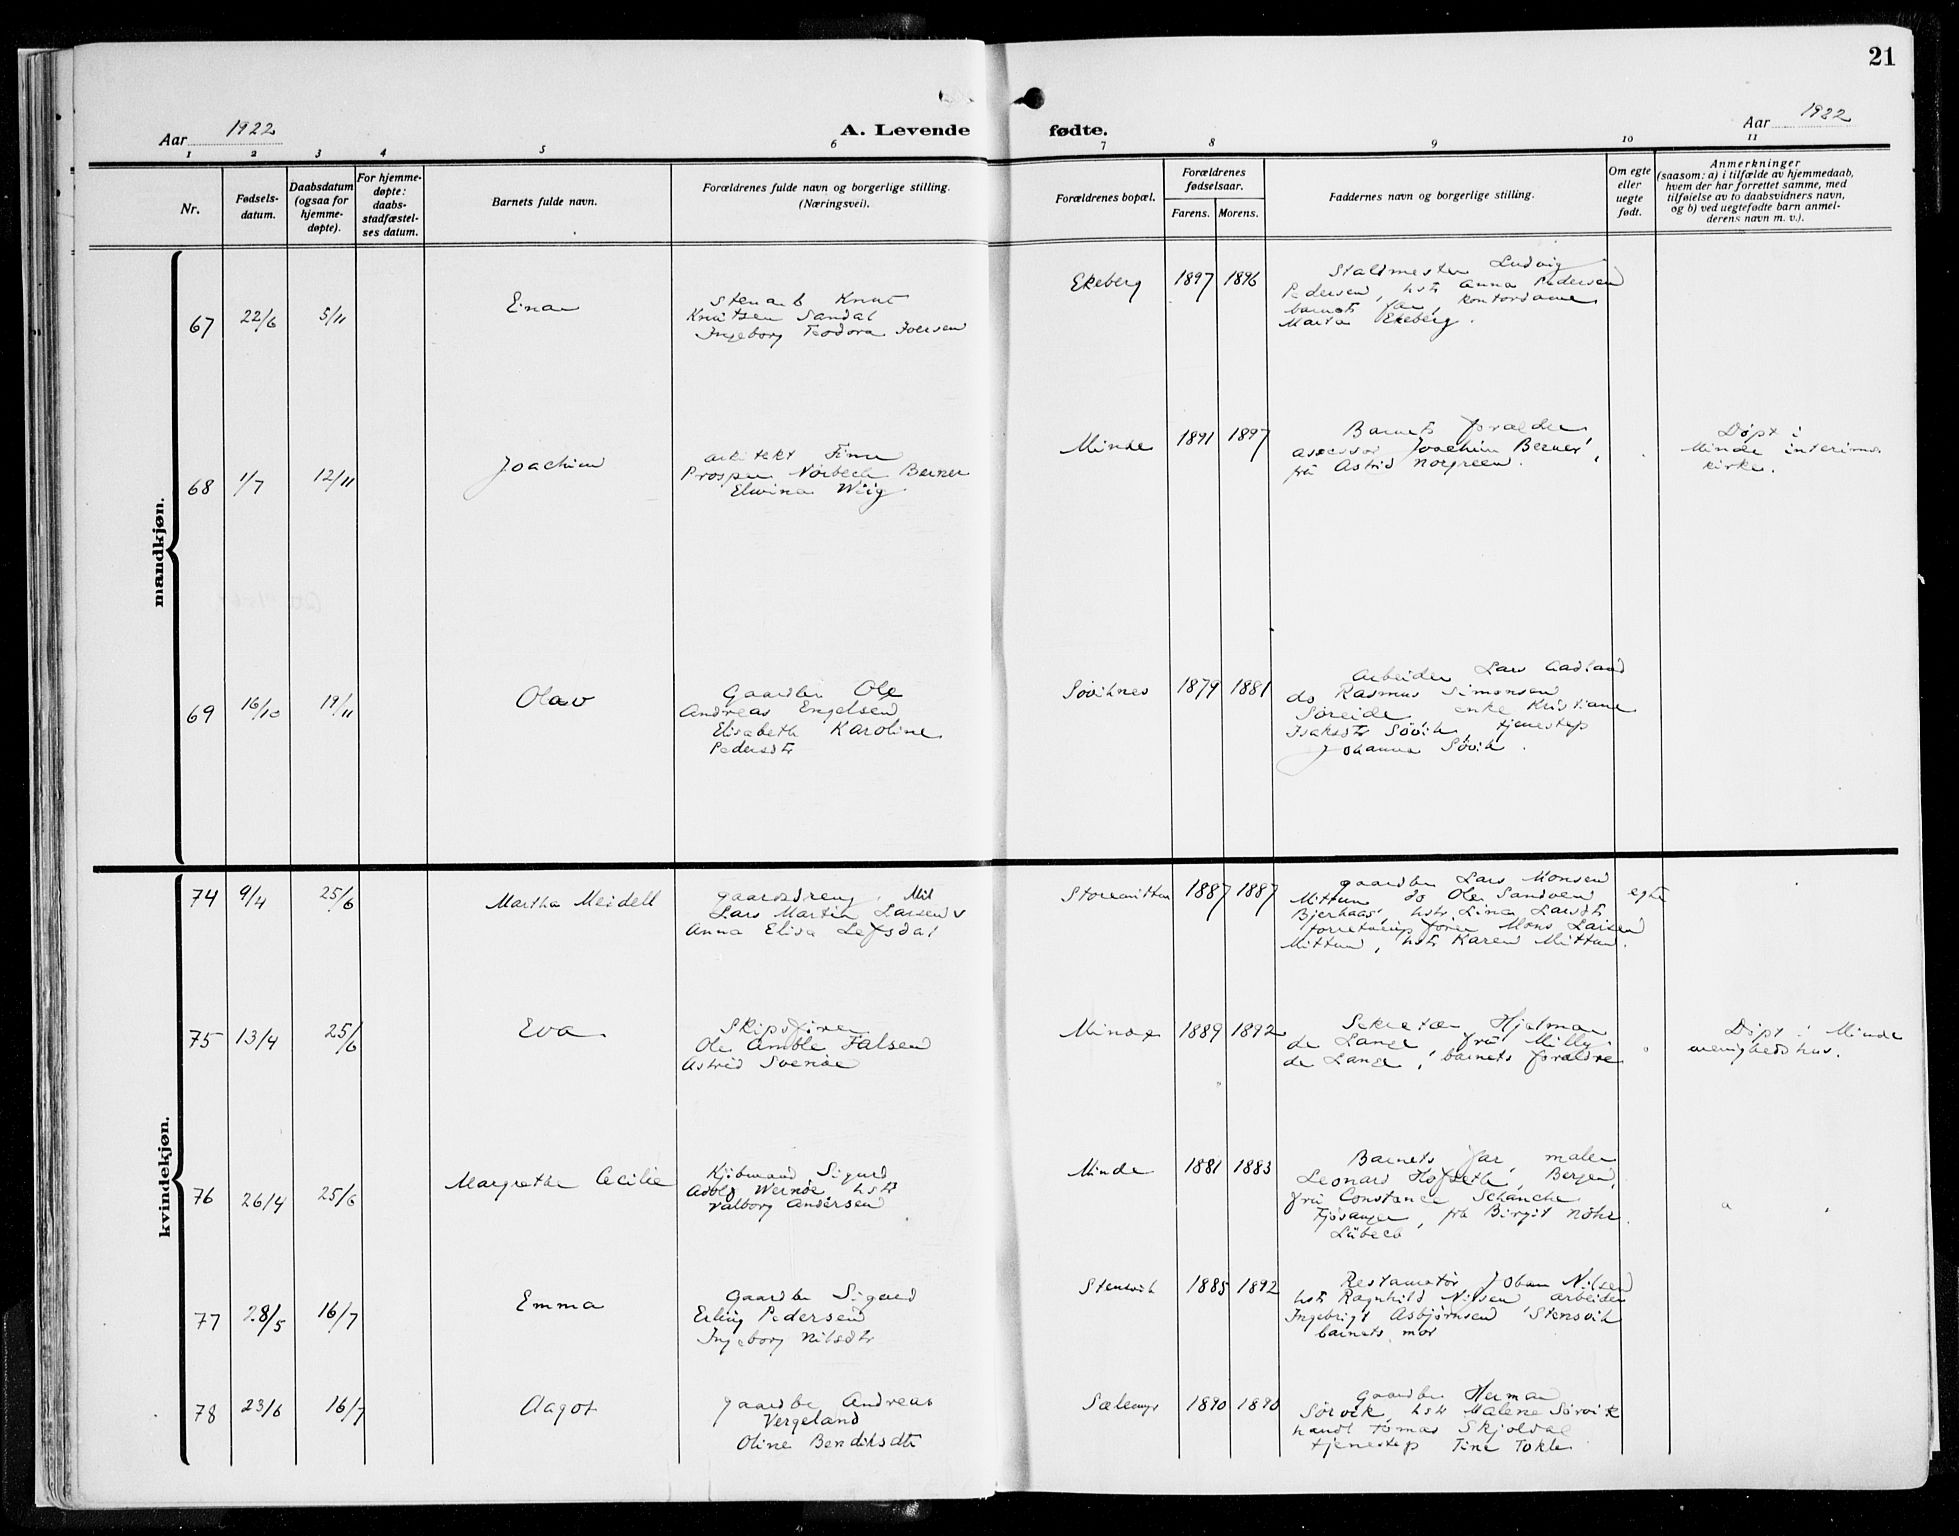 21
Aar 1922
A. Levende fødte.
Aar 1922
1 2 3 4 5 6 7 8 9 10 11
Nr.
Fødsels-
datum.
Daabsdatum
(ogsaa for
hjemme-
døpte).
For hjemme-
døpte:
daabs-
stadfæstel-
ses datum.
Barnets fulde navn.
Forældrenes fulde navn og borgerlige stilling.
(Næringsvei).
Forældrenes bopæl.
Forældrenes
fødselsaar.
Farens. Morens.
Faddernes navn og borgerlige stilling.
Om egte
eller
uegte
født.
Anmerkninger
(saasom: a) i tilfælde av hjemmedaab,
hvem der har forrettet samme, med
tilføielse av to daabsvidners navn,
og b) ved uegtefødte barn anmel-
derens navn m. v.).
mandkjøn.
67 22/6 5/11
Einar
Stenarb Knut
Knutsen Sandal
Ingeborg Teodora Iversen
Ekeberg 1897 1896
Staldmester Ludvig
Pedersen, hstr Anna Pedersen
barnets far, kontordame
Marta Ekeberg.
68 1/7 12/11
Joachim
arkitekt Finn
Prosper Norbech Berner
Elwina Wiig
Minde 1891 1897
Barnets forælder
assessor Joachim Berner,
frú Astrid Norgreen.
Døpt i
Minde interims
kirke.
69 16/10 19/11
Olav
Gaardbr Ole
Andreas Engelsen
Elisabeth Karoline
Pedersdtr
Søviknes 1879 1881
Arbeider Lars Aadland
do Rasmus Simonsen
Søreide enke Kristiane
Isaksdtr Søvik, tjenestep
Johanna Søvik.
kvindekjøn.
74 9/4 25/6
Martha Meidell
gaardsdreng
Lars Martin Larsen
Anna Elisa Lefsdal
Storemittun 1887 1887
gaardbr Lars Monsen
Mittun do Ole Sandven
Bjerkaas, hstr Lina Larsdtr
forretningsfører Mons Larsen
Mittun, hstr Karen Mittun.
egte
75 13/4 25/6
Eva
Skipsfører
Ole Amble Falsen
Astrid Svenøe
Minde 1889 1892
Sekretær Hjelmar
de Lange frú Milly
de Lange, barnets forældre
Døpt i Minde
menighedshus.
76 26/4 25/6
Margrethe Cecilie
Kjøbmand Sigurd
Adolf Wernøe, hstr
Valborg Andersen
Minde 1881 1883
Barnets far, maler
Leonard Hofseth, Bergen,
frú Constance Schanche
Fjøsanger, frk Birgit Nöhr
Lübeck
77 28/5 16/7
Emma
Gaardbr Sigurd
Erling Pedersen
Ingeborg Nilsdtr
Stensvik 1885 1892
Restauratør Johan Nilsen
hstr Ragnhild Nilsen arbeider
Ingebrigt Asbjørnsen Stensvik
barnets mor
78 23/6 16/7
Aagot
gaardbr Andreas
Vergeland
Oline Bendiksdtr
Sælenes 1890 1890
Gaardbr Herman
Sørvik, hstr Malene Sørvik
handl Tomas Skjoldal
tjenestep Tine Tokle